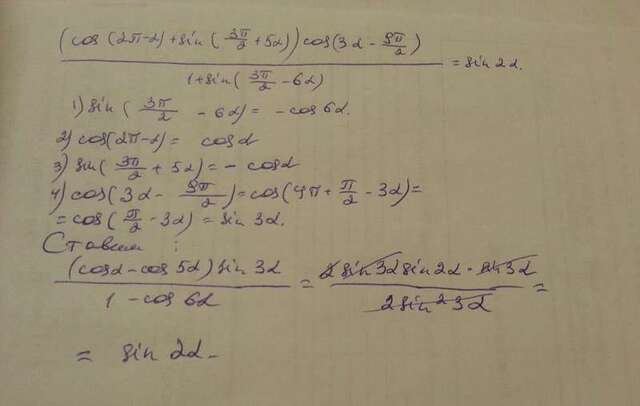 (cos(2π-α)+sin(3π/2+5α))cos(3α-9π/2) / 1+sin(3π/2-6α) = sin2α.
1) sin(3π/2 - 6α) = -cos6α.
2) cos(2π-α) = cosα
3) sin(3π/2 + 5α) = - cosα
4) cos(3α - 9π/2) = cos(4π + π/2 - 3α) =
= cos(π/2 - 3α) = sin 3α.
Ставим :
(cosα - cos 5α) sin 3α / 1 - cos 6α = 2 sin 3α sin 2α · sin 3α / 2 sin² 3α =
= sin 2α.